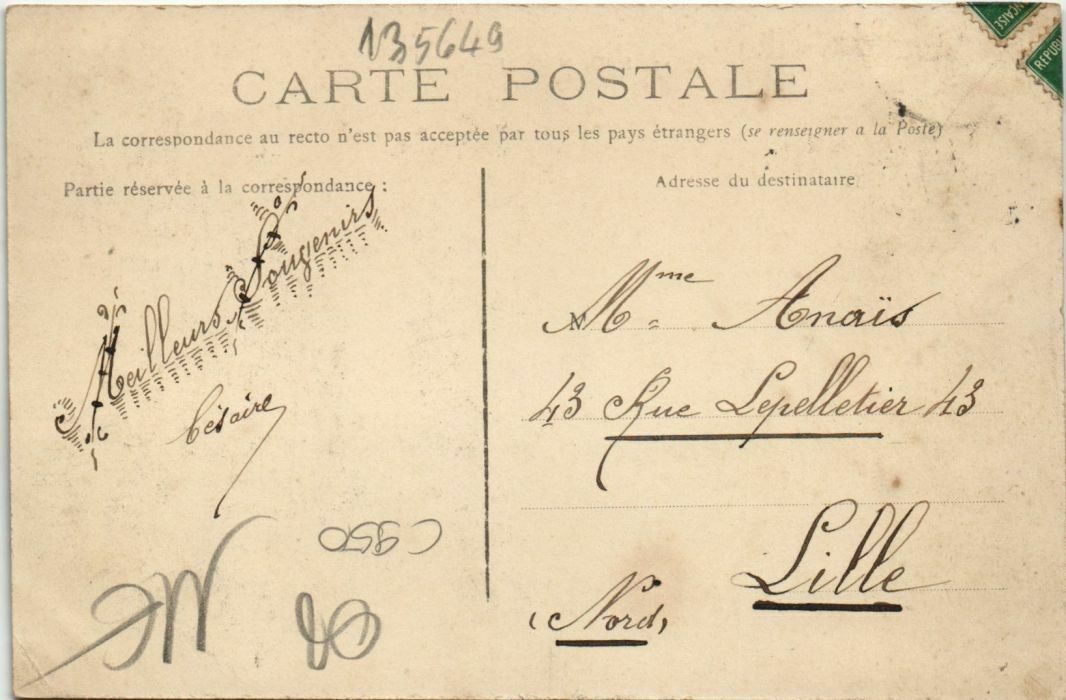 135649
CARTE POSTALE
La correspondance au recto n'est pas acceptée par tous les pays étrangers (se renseigner a la Poste)
Partie réservée à la correspondance :
Meilleurs Sougenirs
Césaire
C 950
Adresse du destinataire
Mme Anaïs
43 Rue Lepelletier 43
Lille
(Nord)
ÇAISE
REPUBL